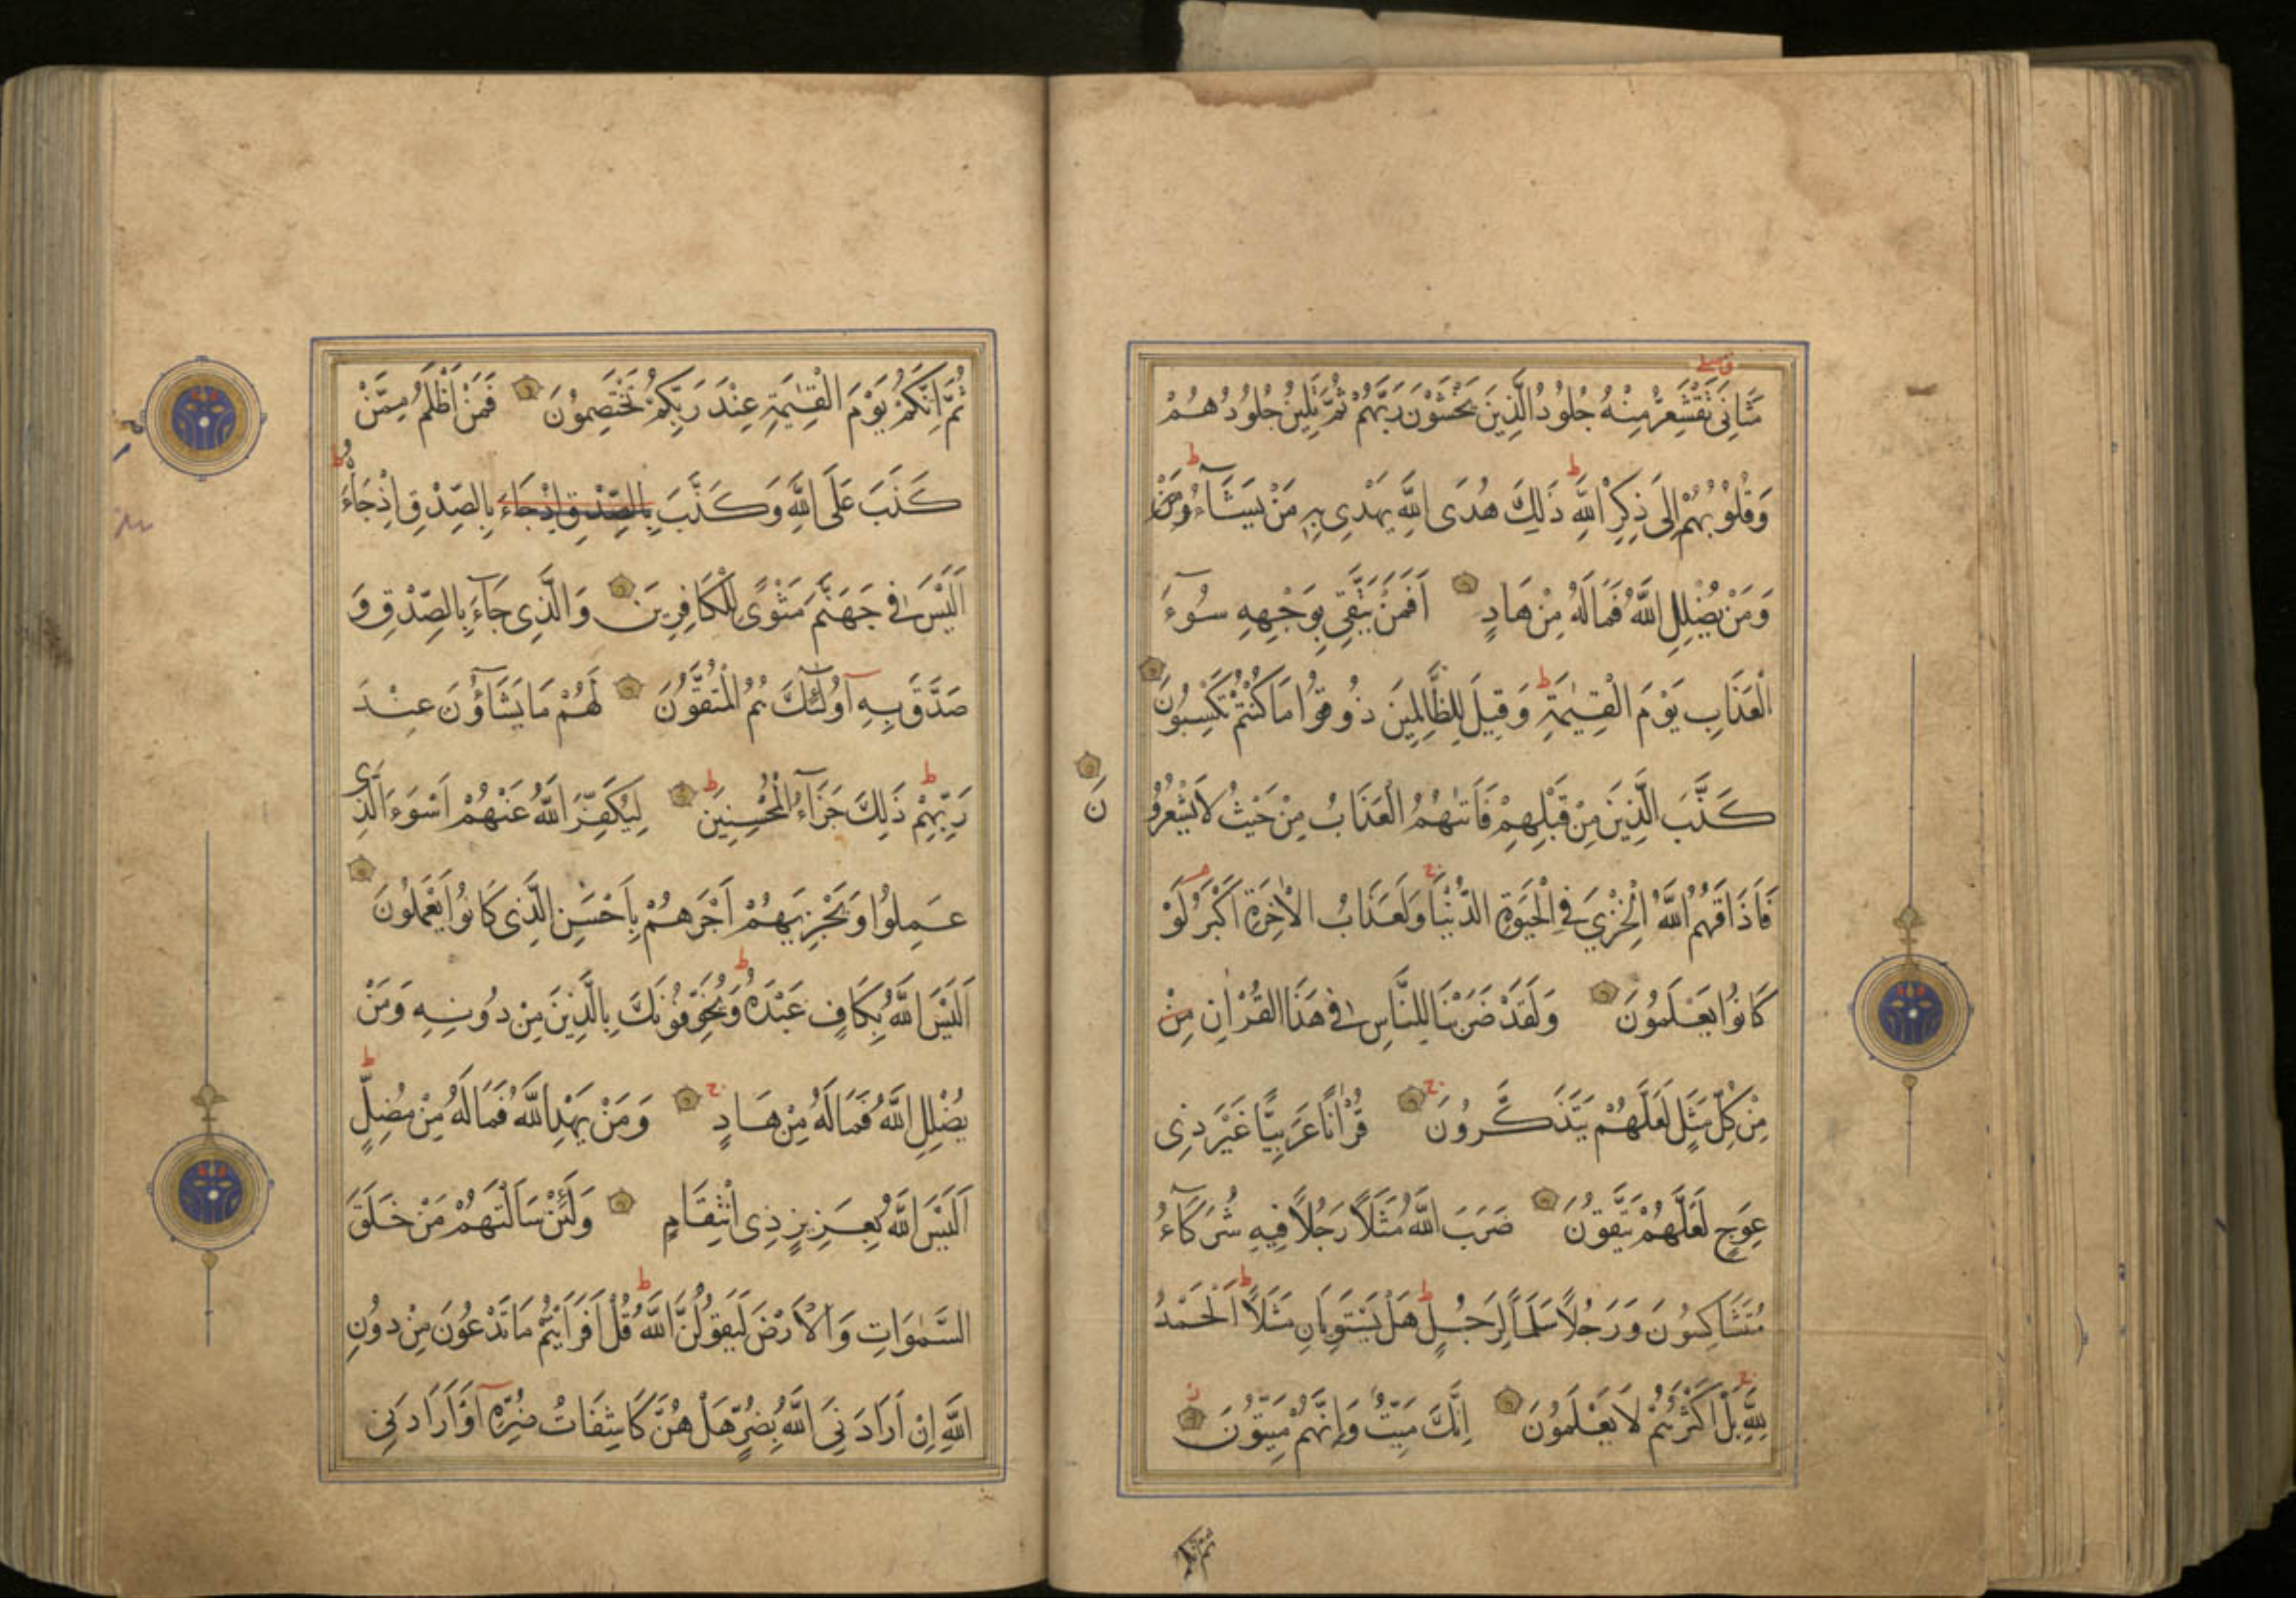 مَثَانِيَ تَقْشَعِرُّ مِنْهُ جُلُودُ الَّذِينَ يَخْشَوْنَ رَبَّهُمْ ثُمَّ تَلِينُ جُلُودُهُمْ
وَقُلُوبُهُمْ إِلَى ذِكْرِ اللَّهِ ذَلِكَ هُدَى اللَّهِ يَهْدِي بِهِ مَنْ يَشَآءُ وَمَنْ
وَمَنْ يُضْلِلِ اللَّهُ فَمَا لَهُ مِنْ هَادٍ أَفَمَنْ يَتَّقِي بِوَجْهِهِ سُوءَ
الْعَذَابِ يَوْمَ الْقِيٰمَةِ وَقِيلَ لِلظَّالِمِينَ ذُوقُوا مَا كُنْتُمْ تَكْسِبُونَ
كَذَّبَ الَّذِينَ مِنْ قَبْلِهِمْ فَأَتٰهُمُ الْعَذَابُ مِنْ حَيْثُ لَا يَشْعُرُونَ
فَأَذَاقَهُمُ اللَّهُ الْخِزْيَ فِي الْحَيٰوةِ الدُّنْيَا وَلَعَذَابُ الْاٰخِرَةِ أَكْبَرُ لَوْ
كَانُوا يَعْلَمُونَ وَلَقَدْ ضَرَبْنَا لِلنَّاسِ فِي هَذَا الْقُرْاٰنِ مِنْ
مِنْ كُلِّ مَثَلٍ لَعَلَّهُمْ يَتَذَكَّرُونَ قُرْاٰنًا عَرَبِيًّا غَيْرَ ذِي
عِوَجٍ لَعَلَّهُمْ يَتَّقُونَ ضَرَبَ اللَّهُ مَثَلًا رَجُلًا فِيهِ شُرَكَآءُ
مُتَشَاكِسُونَ وَرَجُلًا سَلَمًا لِرَجُلٍ هَلْ يَسْتَوِيَانِ مَثَلًا اَلْحَمْدُ
لِلَّهِ بَلْ أَكْثَرُهُمْ لَا يَعْلَمُونَ إِنَّكَ مَيِّتٌ وَإِنَّهُمْ مَيِّتُونَ
ثم انكم
ثُمَّ إِنَّكُمْ يَوْمَ الْقِيٰمَةِ عِنْدَ رَبِّكُمْ تَخْتَصِمُونَ فَمَنْ أَظْلَمُ مِمَّنْ
كَذَبَ عَلَى اللَّهِ وَكَذَّبَ بِالصِّدْقِ إِذْ جَاءَ بِالصِّدْقِ إِذْ جَاءَهُ
أَلَيْسَ فِي جَهَنَّمَ مَثْوًى لِلْكَافِرِينَ وَالَّذِي جَآءَ بِالصِّدْقِ وَ
صَدَّقَ بِهِ أُولٰئِكَ هُمُ الْمُتَّقُونَ لَهُمْ مَا يَشَآؤُنَ عِنْدَ
رَبِّهِمْ ذَلِكَ جَزَآءُ الْمُحْسِنِينَ لِيُكَفِّرَ اللَّهُ عَنْهُمْ أَسْوَءَ الَّذِي
عَمِلُوا وَيَجْزِيَهُمْ أَجْرَهُمْ بِأَحْسَنِ الَّذِي كَانُوا يَعْمَلُونَ
أَلَيْسَ اللَّهُ بِكَافٍ عَبْدَهُ وَيُخَوِّفُونَكَ بِالَّذِينَ مِنْ دُونِهِ وَمَنْ
يُضْلِلِ اللَّهُ فَمَا لَهُ مِنْ هَادٍ وَمَنْ يَهْدِ اللَّهُ فَمَا لَهُ مِنْ مُضِلٍّ
أَلَيْسَ اللَّهُ بِعَزِيزٍ ذِي انْتِقَامٍ وَلَئِنْ سَأَلْتَهُمْ مَنْ خَلَقَ
السَّمٰوَاتِ وَالْأَرْضَ لَيَقُولُنَّ اللَّهُ قُلْ أَفَرَأَيْتُمْ مَا تَدْعُونَ مِنْ دُونِ
اللَّهِ إِنْ أَرَادَنِيَ اللَّهُ بِضُرٍّ هَلْ هُنَّ كَاشِفَاتُ ضُرِّهِ أَوْ أَرَادَنِي